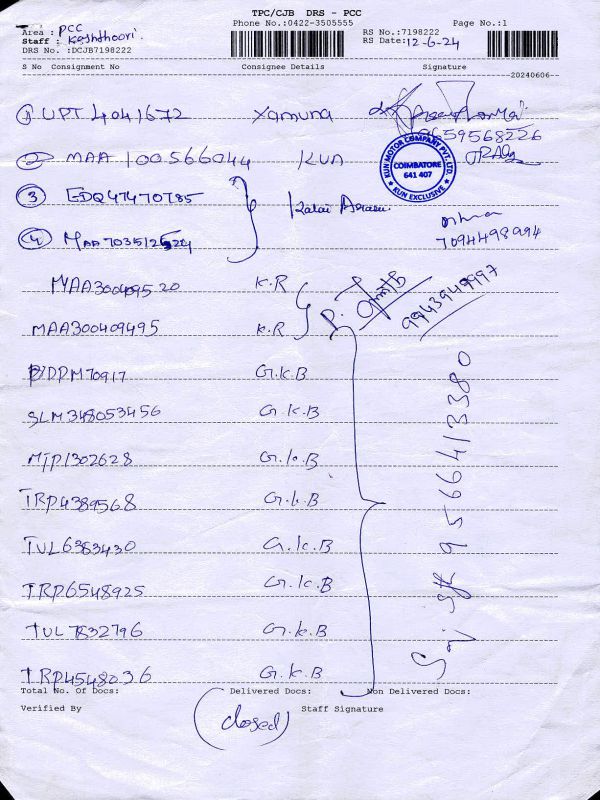 TPC/CJB DRS - PCC
Phone No.:0422-3505555 Page No.:1
Area : PCC
Staff : Keshthoori.
DRS No. :DCJB7198222
RS No.:7198222
RS Date:12-6-24
S No Consignment No Consignee Details Signature
20240606
① UPT 4041672 Yamuna
9659568226
② MAA 100566044 KUN
KUN MOTOR COMPANY PVT. LTD.
COIMBATORE
641 407
KUN EXCLUSIVE
③ EDQ47470785 Kalai Arasu
④ MAA703512524 7094498994
MAA300409520 K.R
9943949997
MAA300409495 K.R
PDDM70917 G.K.B
SLM348053456 G.K.B
9566413380
MTP1302628 G.K.B
TRP4389568 G.K.B
TUL6383430 G.K.B
TRP6548925 G.K.B
TUL7832796 G.K.B
TRP4548036 G.K.B
Total No. Of Docs: Delivered Docs: Non Delivered Docs:
Verified By Staff Signature
(closed)